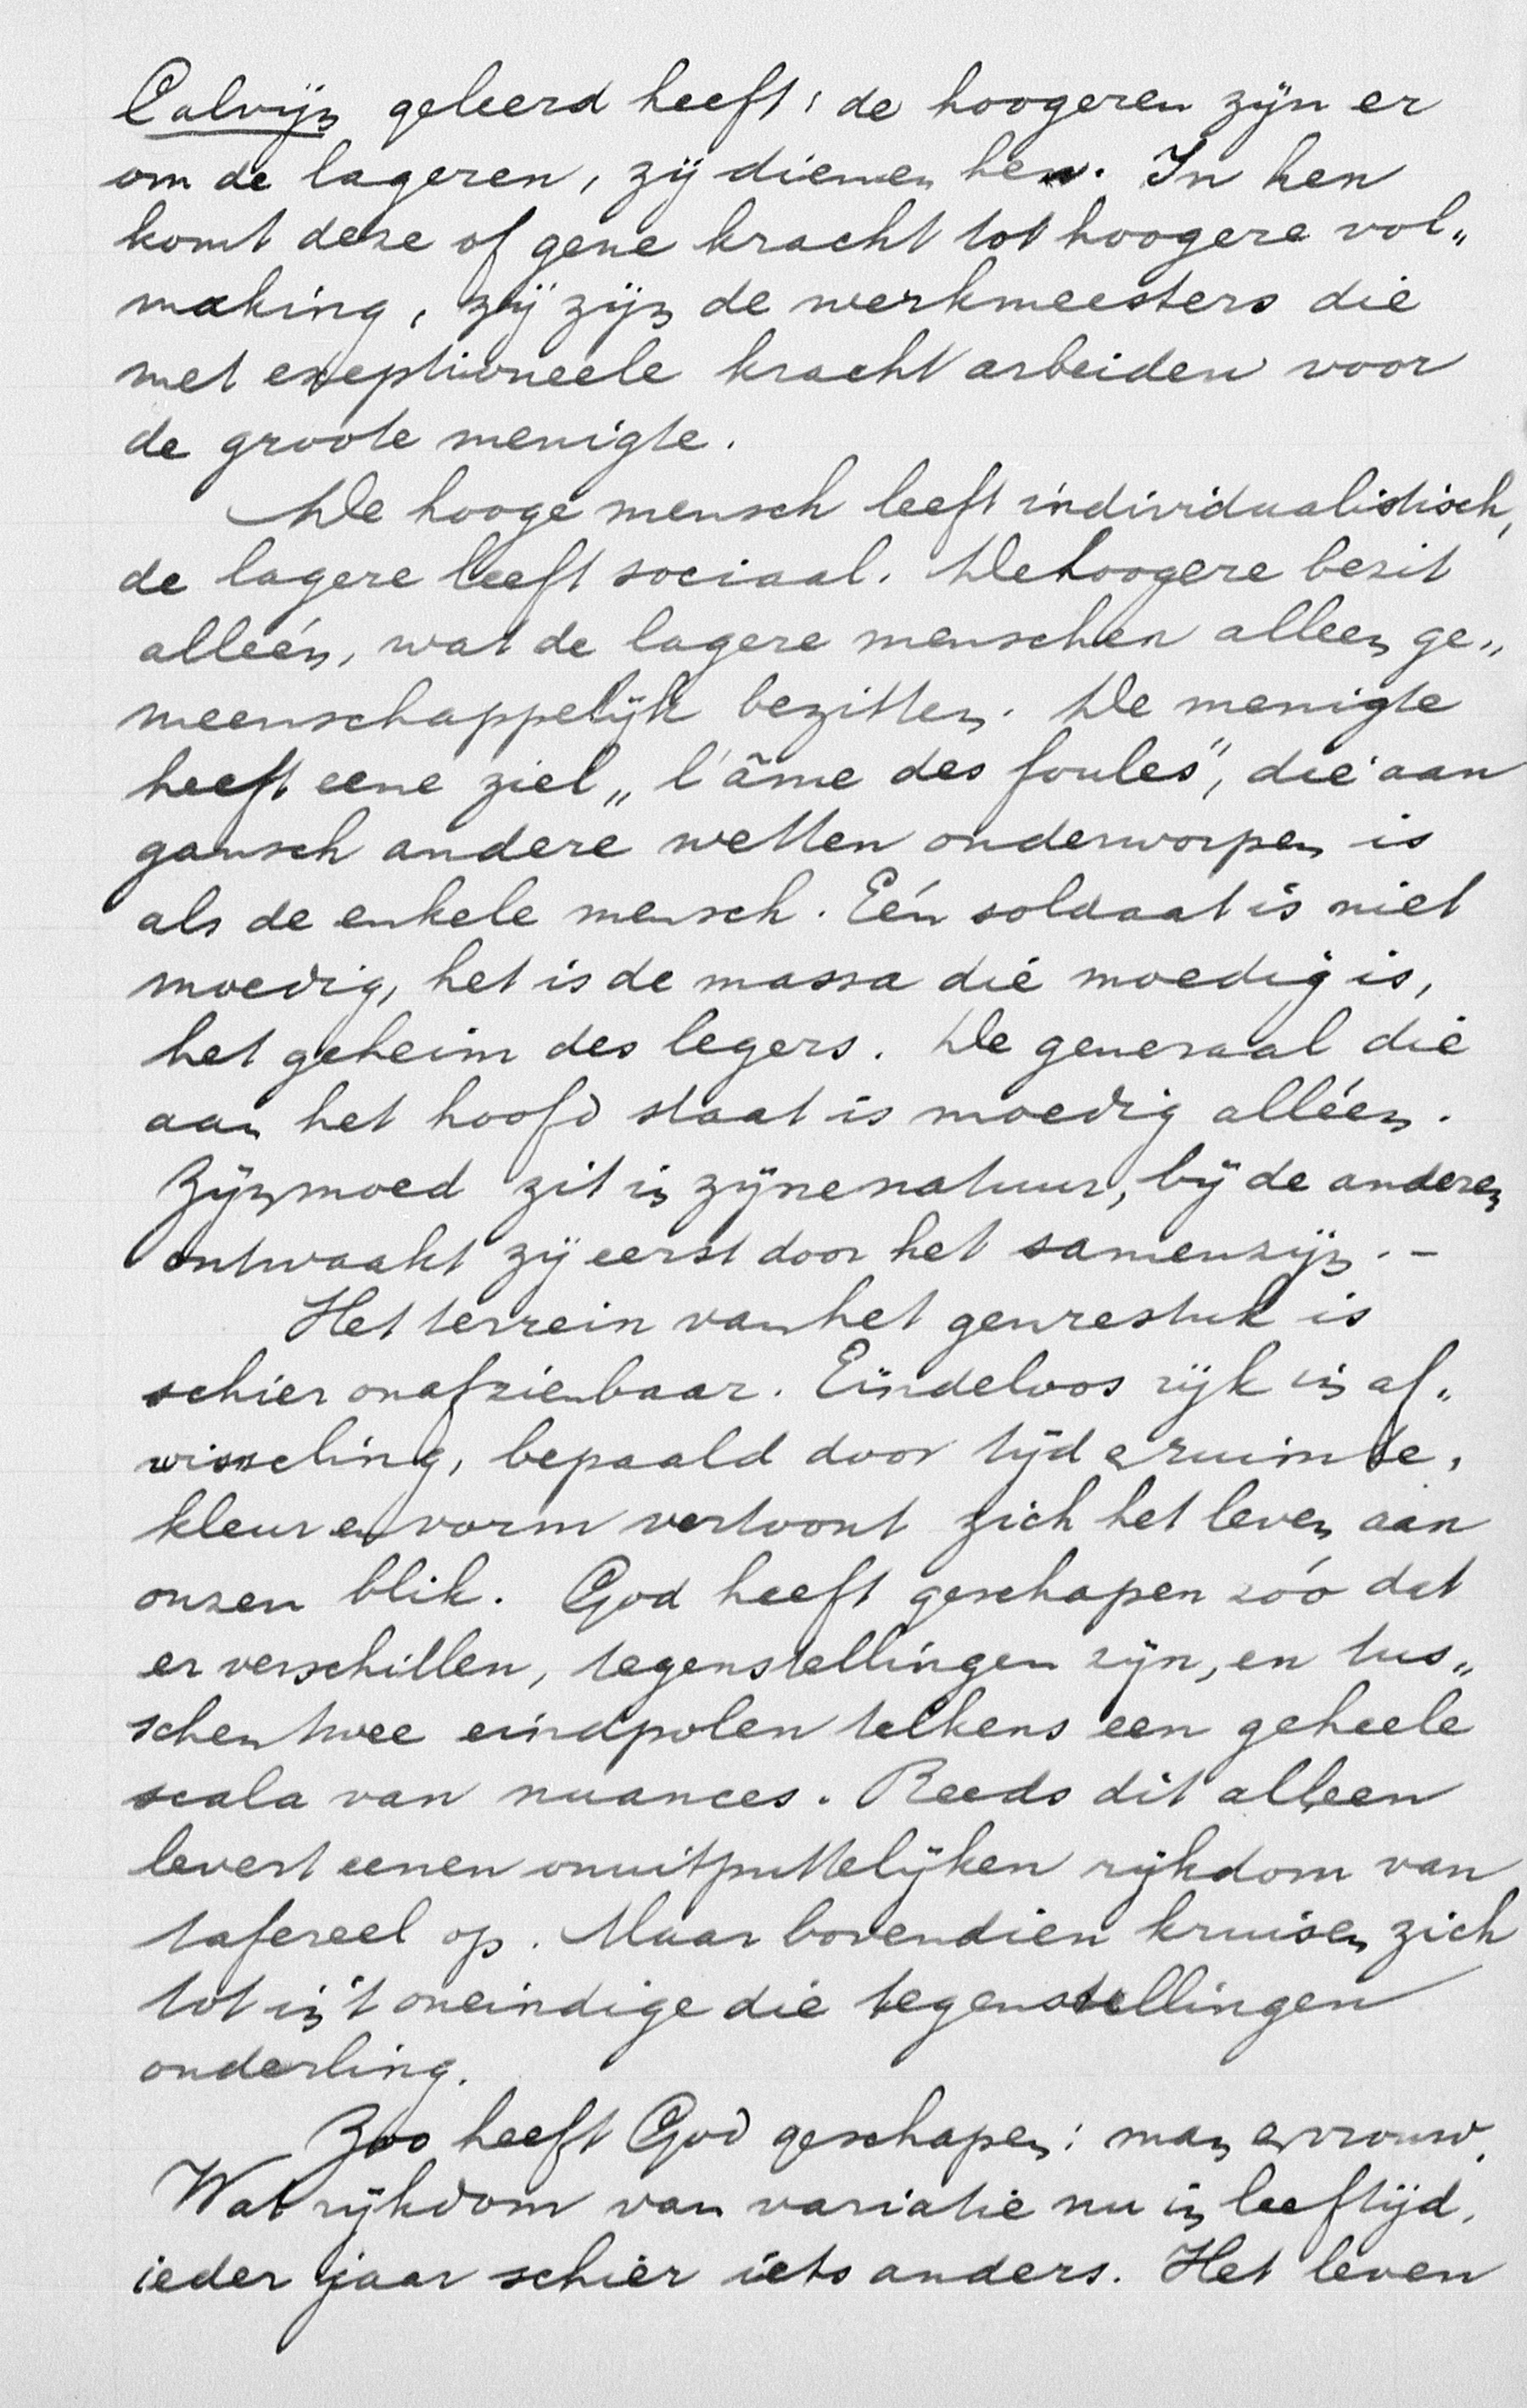 Calvijn geleerd heeft: de hoogeren zijn er
om de lageren, zij dienen hen. In hen
komt deze of gene kracht tot hoogere vol„
making, zij zijn de werkmeesters die
met exeptioneele kracht arbeiden voor
de groote menigte.
De hooge mensch leeft individualistisch,
de lagere leeft sociaal. De hoogere bezit
alleén, wat de lagere menschen alleen ge„
meenschappelijk bezitten. De menigte
heeft eene ziel „l'âme des foules", die aan
gansch andere wetten onderworpen is
als de enkele mensch. Eén soldaat is niet
moedig, het is de massa die moedig is,
het geheim des legers. De generaal die
aan het hoofd staat is moedig alléén.
Zijn moed zit in zijne natuur, bij de anderen
ontwaakt zij eerst door het samenzijn. -
Het terrein van het genrestuk is
schier onafzienbaar. Eindeloos rijk in af„
wisseling, bepaald door tijd en ruimte,
kleur en vorm vertoont zich het leven aan
onzen blik. God heeft geschapen zóó dat
er verschillen, tegenstellingen zijn, en tus„
schen twee eindpolen telkens een geheele
scala van nuances. Reeds dit alleen
levert eenen onuitputtelijken rijkdom van
tafereel op. Maar bovendien kruisen zich
tot in 't oneindige die tegenstellingen
onderling.
Zoo heeft God geschapen: man en vrouw.
Wat rijkdom van variatie nu in leeftijd,
ieder jaar schier iets anders. Het leven